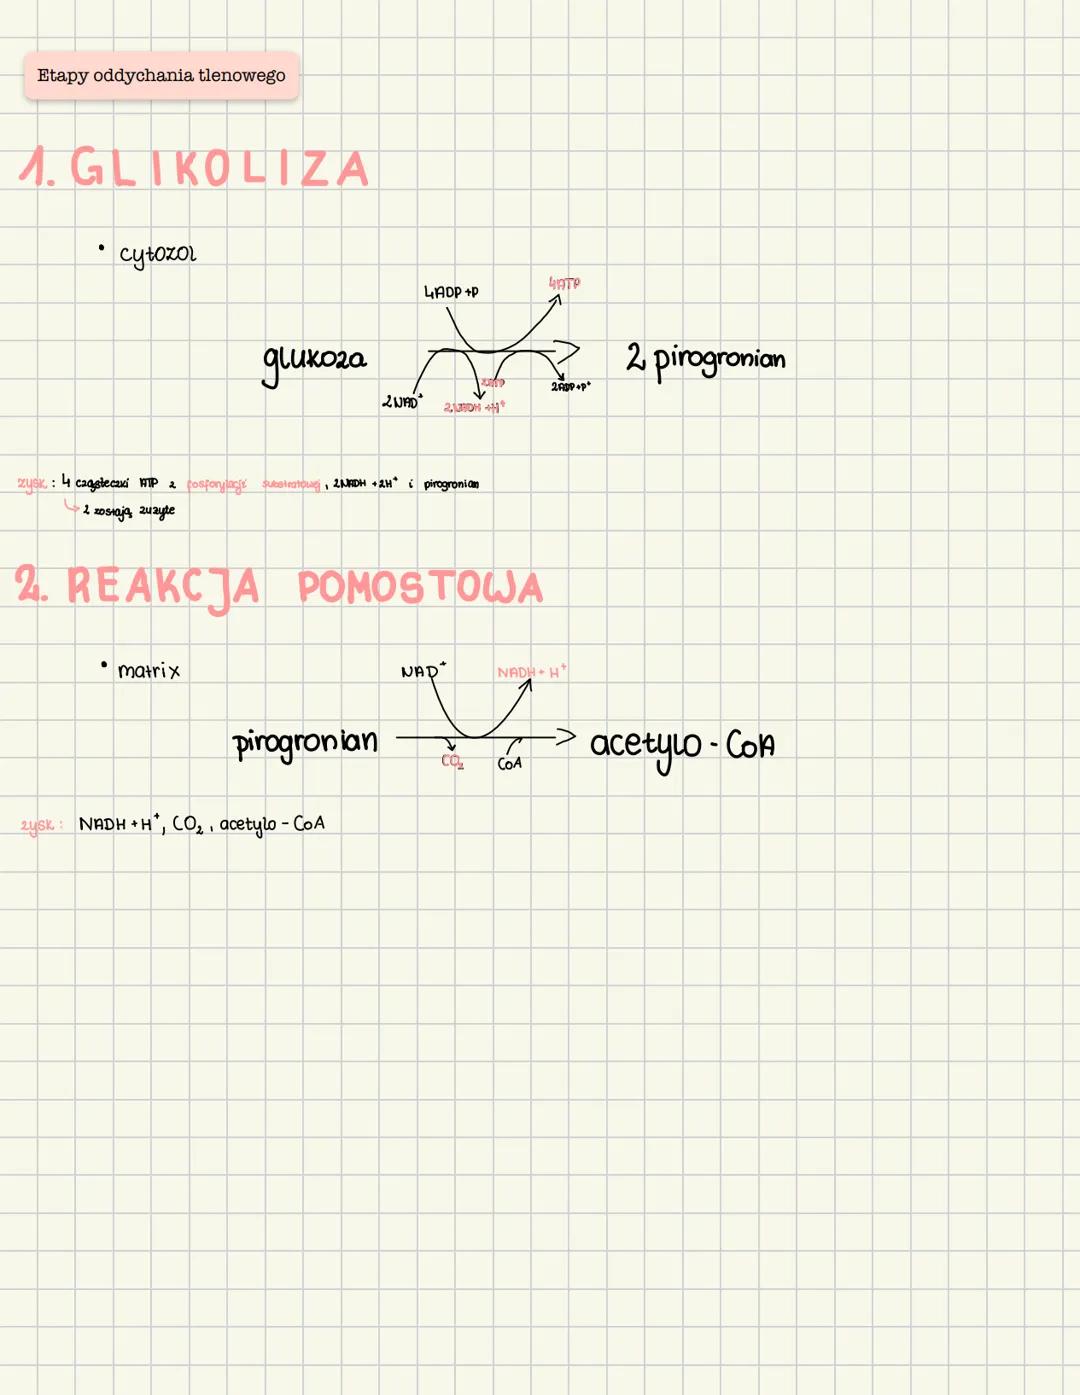 Etapy oddychania tlenowego
1. GLIKOLIZA
• cytozol
4ADP +P 4ATP
glukoza 2 pirogronian
2ATP 2ADP+P⁺
2NAD⁺ 2NADH +H⁺
zysk : 4 cząsteczki ATP z fosforylacji substratowej, 2NADH +2H⁺ i pirogronian
2 zostają zużyte
2. REAKCJA POMOSTOWA
• matrix
NAD⁺ NADH+H⁺
pirogronian acetylo - CoA
CO₂ CoA
zysk : NADH +H⁺, CO₂, acetylo - CoA